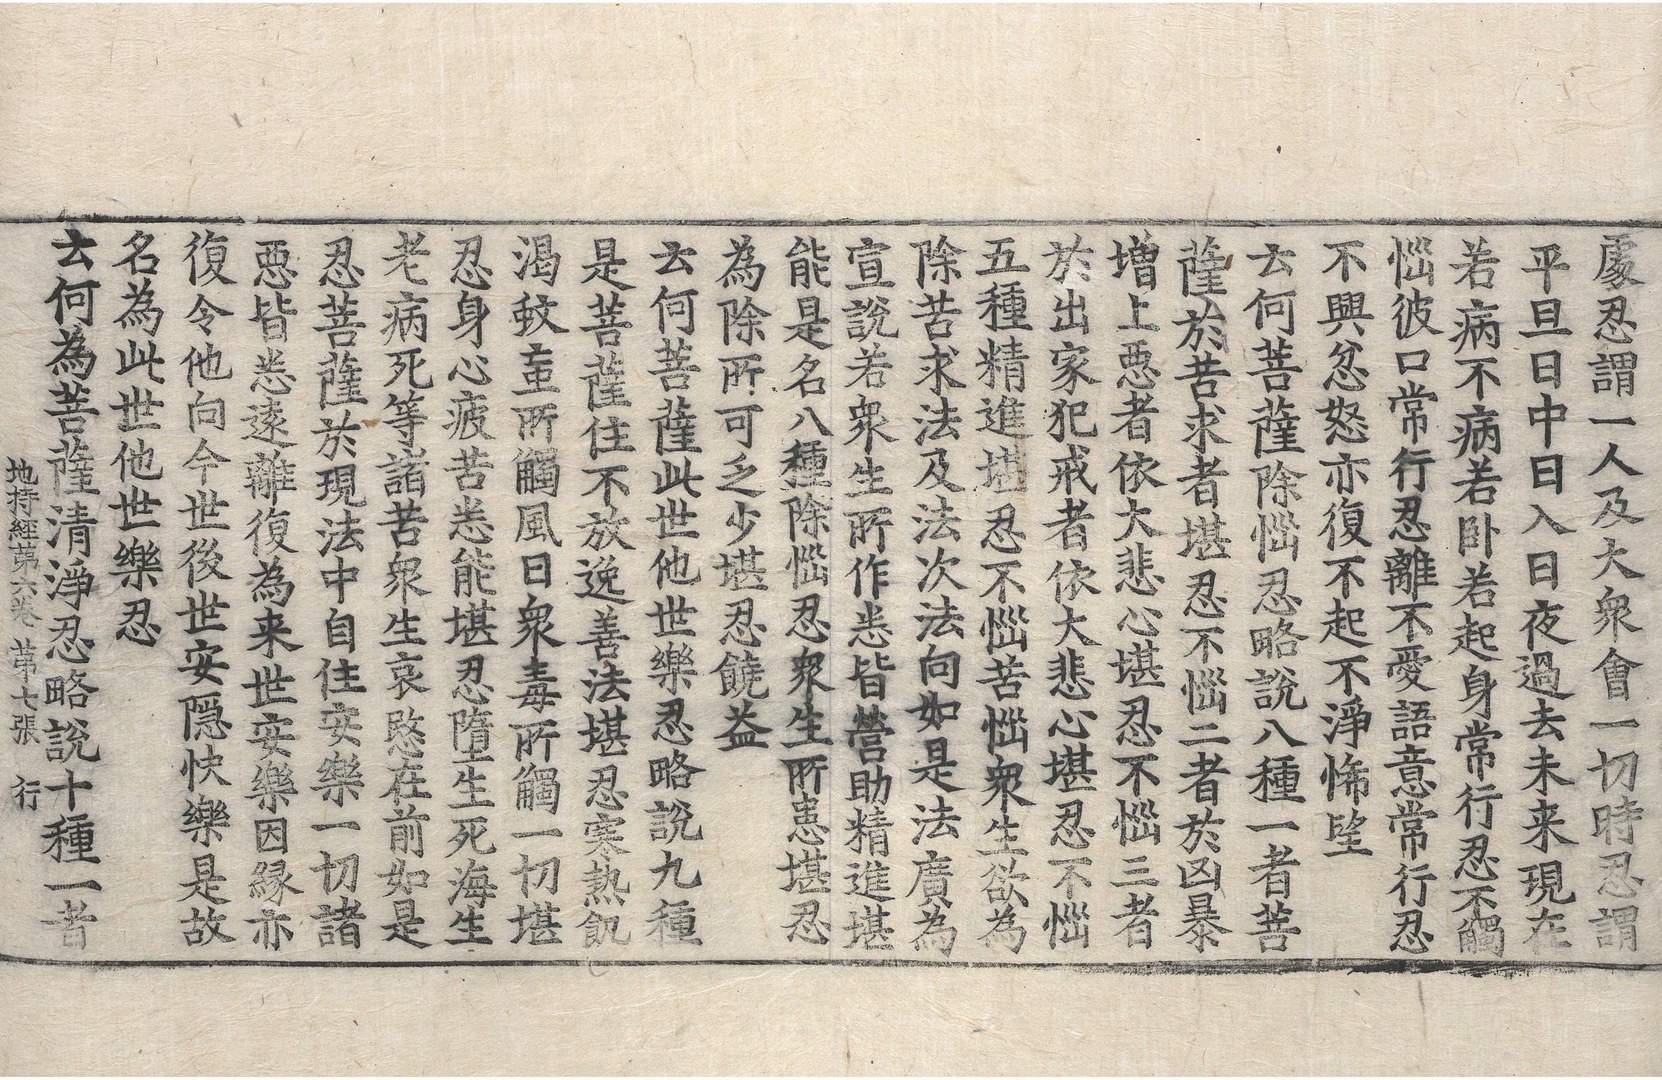 處忍謂一人及大衆會一切時忍謂
平旦日中日入日夜過去未来現在
若病不病若卧若起身常行忍不觸
惱彼口常行忍離不愛語意常行忍
不興忿怒亦復不起不淨悕望
云何菩薩除惱忍略說八種一者菩
薩於苦求者堪忍不惱二者於凶暴
增上惡者依大悲心堪忍不惱三者
於出家犯戒者依大悲心堪忍不惱
五種精進堪忍不惱苦惱衆生欲為
除苦求法及法次法向如是法廣為
宣說若衆生所作悉皆營助精進堪
能是名八種除惱忍衆生所恚堪忍
為除所可乏少堪忍饒益
云何菩薩此世他世樂忍略說九種
是菩薩住不放逸善法堪忍寒熱飢
渴蚊䖝所觸風日衆毒所觸一切堪
忍身心疲苦悉能堪忍墮生死海生
老病死等諸苦衆生哀愍在前如是
忍菩薩於現法中自住安樂一切諸
惡皆悉遠離復為来世安樂因緣亦
復令他向今世後世安隱快樂是故
名為此世他世樂忍
云何為菩薩清淨忍略說十種一者
地持經第六卷 第七張 行